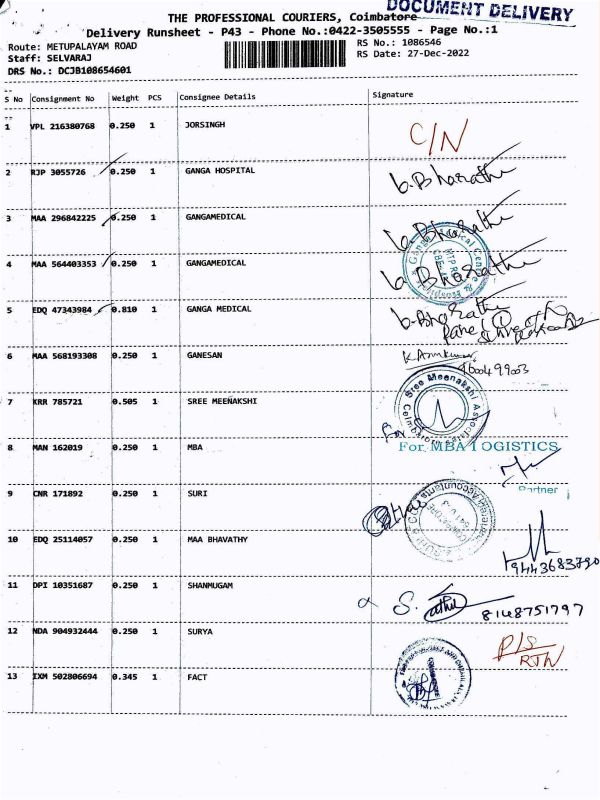 DOCUMENT DELIVERY
THE PROFESSIONAL COURIERS, Coimbatore
Delivery Runsheet - P43 - Phone No.:0422-3505555 - Page No.:1
Route: METUPALAYAM ROAD
RS No.: 1086546
Staff: SELVARAJ
RS Date: 27-Dec-2022
DRS No.: DCJB108654601
S No Consignment No Weight PCS Consignee Details Signature
1 VPL 216380768 0.250 1 JORSINGH C/N
2 RJP 3055726 0.250 1 GANGA HOSPITAL b.Bharathi
3 MAA 296842225 0.250 1 GANGAMEDICAL b.Bharathi
4 MAA 564403353 0.250 1 GANGAMEDICAL b.Bharathi
5 EDQ 47343984 0.810 1 GANGA MEDICAL b.Bharathi
6 MAA 568193308 0.250 1 GANESAN
7 KRR 785721 0.505 1 SREE MEENAKSHI Sree Meenakshi Associates Coimbatore
8 MAN 162019 0.250 1 MBA For MBA LOGISTICS
Partner
9 CNR 171892 0.250 1 SURI
10 EDQ 25114057 0.250 1 MAA BHAVATHY 9443683790
11 DPI 10351687 0.250 1 SHANMUGAM 8148751797
12 NDA 904932444 0.250 1 SURYA P/S
RTN
13 IXM 502806694 0.345 1 FACT